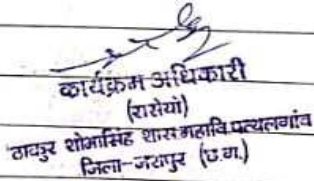 कार्यक्रम अधिकारी
(रासेयो)
ठाकुर शोभासिंह शास. महावि. पत्थलगांव
जिला-जशपुर (छ.ग.)